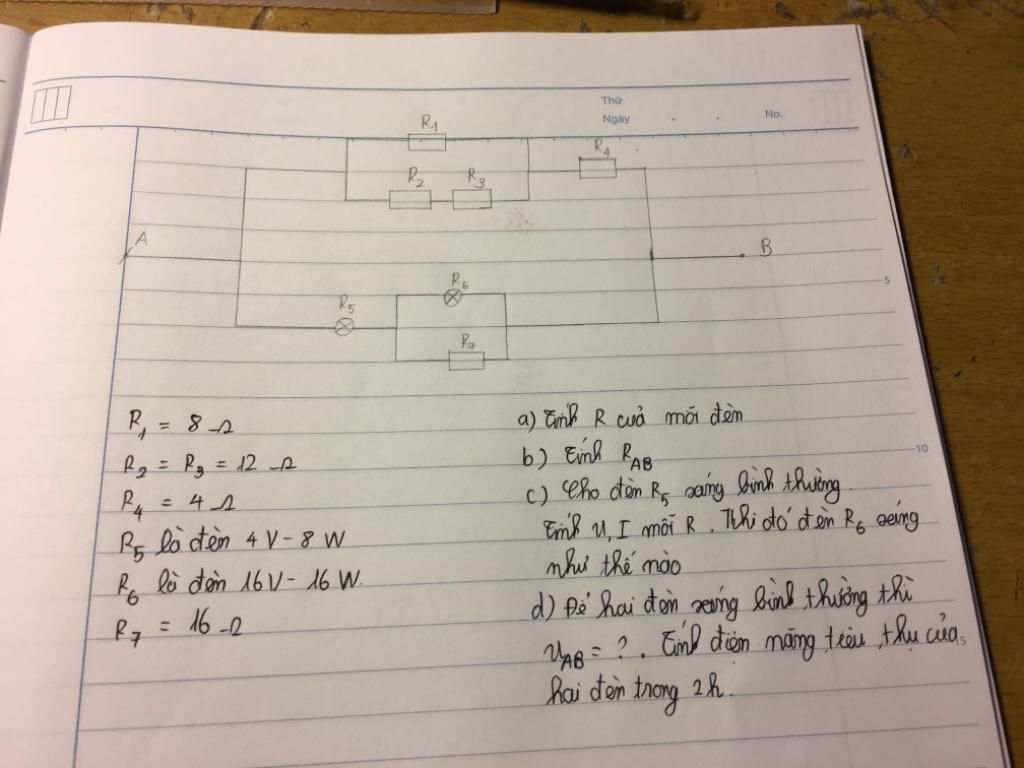 Thứ
Ngày . .
No.
R1
R2
R3
R4
A
B
R5
R6
R7
5
R1 = 8 Ω
R2 = R3 = 12 Ω
R4 = 4 Ω
R5 là đèn 4V - 8 W
R6 là đèn 16V - 16 W.
R7 = 16 Ω
a) Tính R cuả mỗi đèn
b) Tính RAB
10
c) Cho đèn R5 sáng bình thường.
Tính U, I mỗi R. Khi đó đèn R6 sáng
như thế nào
d) Để hai đèn sáng bình thường thì
UAB = ? . Tính điện năng tiêu thụ của
5
hai đèn trong 2h.